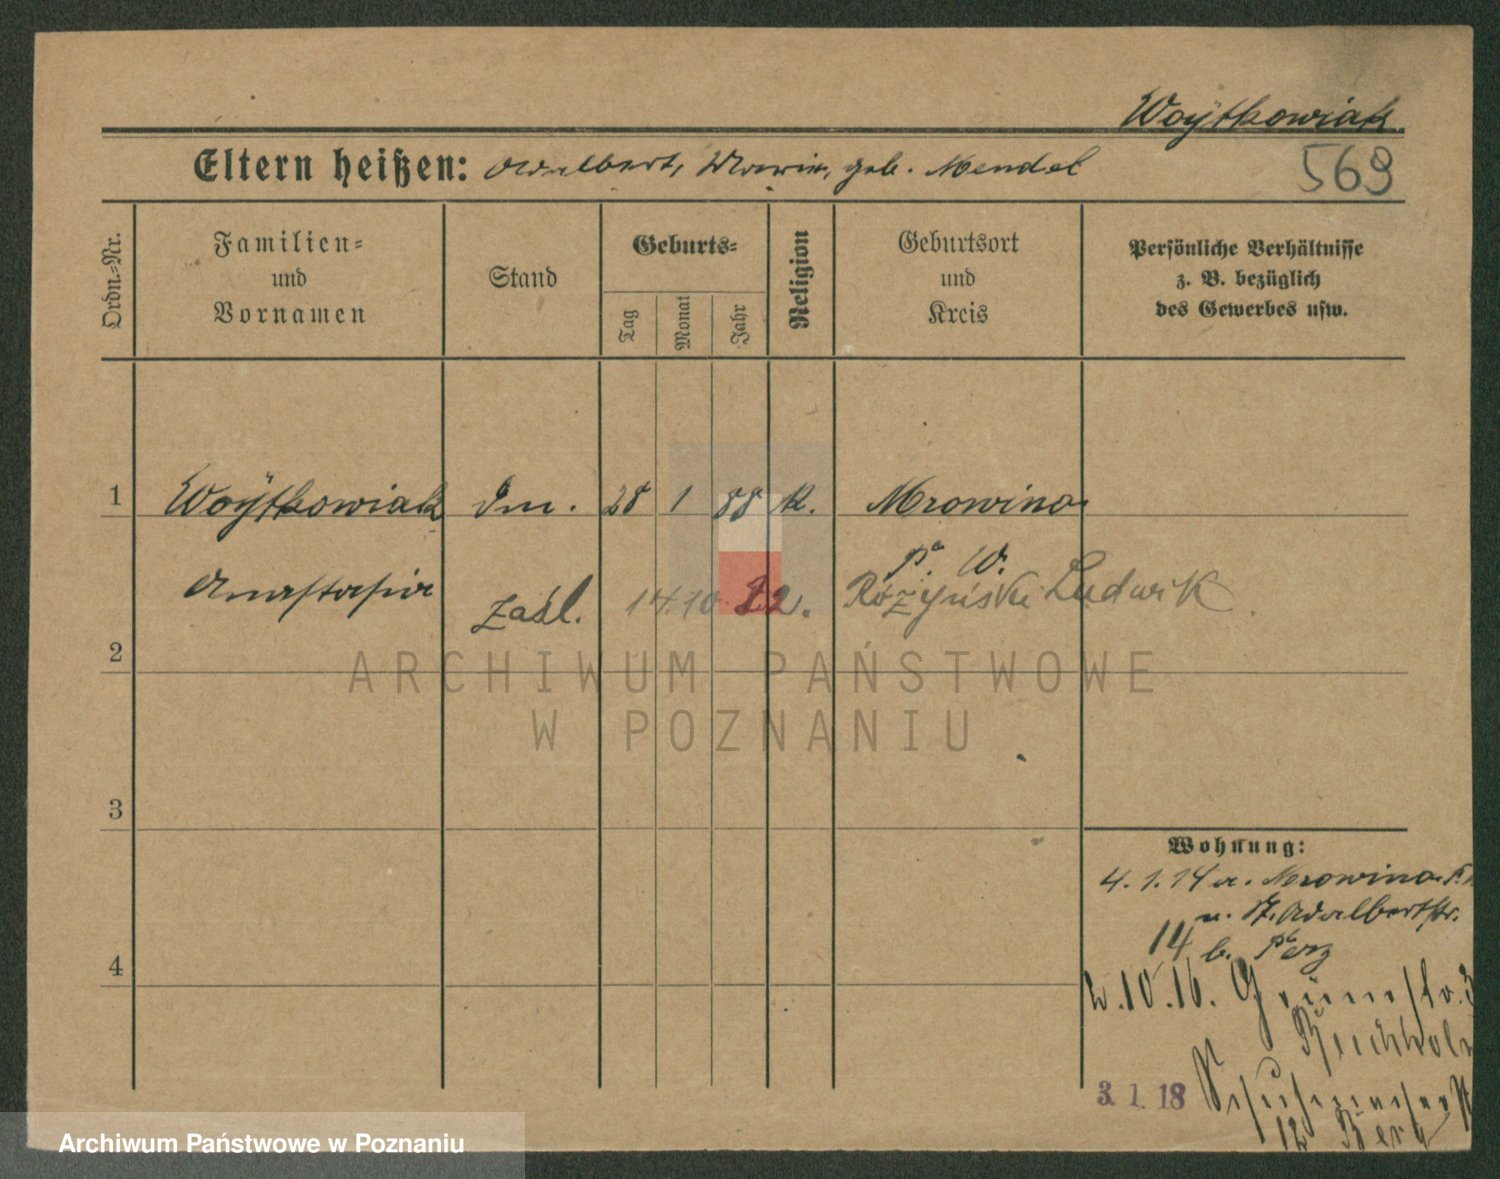 Woÿtkowiak
Eltern heißen: Adalbert, Maria, geb. Mendel
569
Ordn.=Nr.
Familien=
und
Vornamen
Stand
Geburts=
Tag
Monat
Jahr
Religion
Geburtsort
und
Kreis
Persönliche Verhältnisse
z. B. bezüglich
des Gewerbes usw.
1 Woÿtkowiak 28 1 88 k. Mrowino
P. W.
Anastasia
zaśl. 14.10.22. Różyński Ludwik
2
3
4
Wohnung:
4.1.14 a. Mrowino
n. St. Adalbertstr.
14 b. Perz
10.16. Grünestr. 3
3.1.18
12
ARCHIWUM PAŃSTWOWE
W POZNANIU
Archiwum Państwowe w Poznaniu